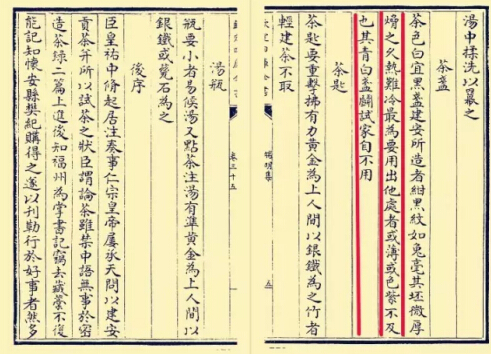 湯中揉洗以羃之
茶盞
茶色白宜黑盞建安所造者紺黑紋如兔毫其坯微厚
熁之久熱難冷最為要用出他處者或薄或色紫不及
也其青白盞鬬試家自不用
茶匙
茶匙要重擊拂有力黃金為上人間以銀鐵為之竹者
輕建茶不取
端明集
五
卷三十五
湯瓶
瓶要小者易候湯又點茶注湯有準黃金為上人間以
銀鐵或瓷石為之
後序
臣皇祐中脩起居注奏事仁宗皇帝屢承天問以建安
貢茶并所以試茶之狀臣謂論茶雖禁中語無事於密
造茶錄二篇上進後知福州為掌書記竊去藏藁不復
能記知懷安縣樊紀購得之遂以刊勒行於好事者然多